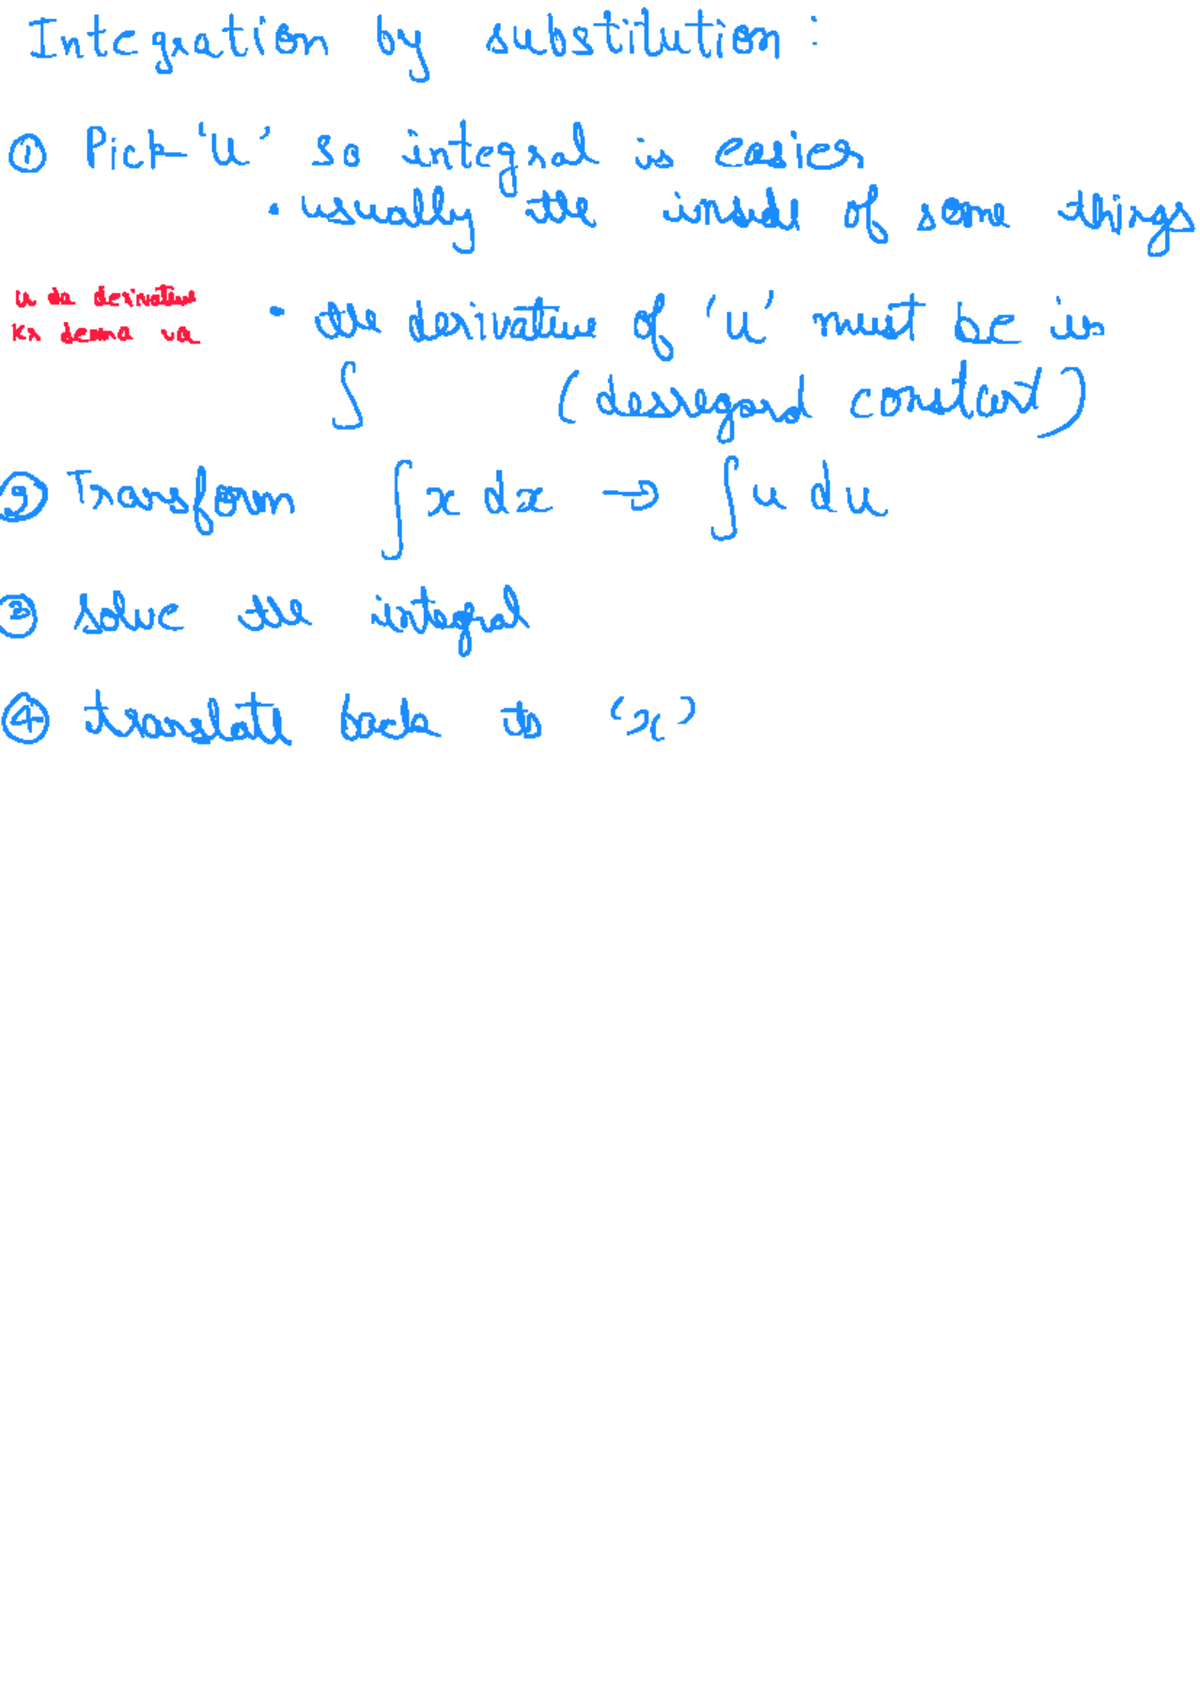 Integration by substitution:
① Pick 'u' so integral is easier
• usually the inside of some things
u da derivative
kr deana va
• the derivative of 'u' must be in
∫ (desregard constant)
② Transform ∫ x dx → ∫ u du
③ solve the integral
④ translate back to 'x'